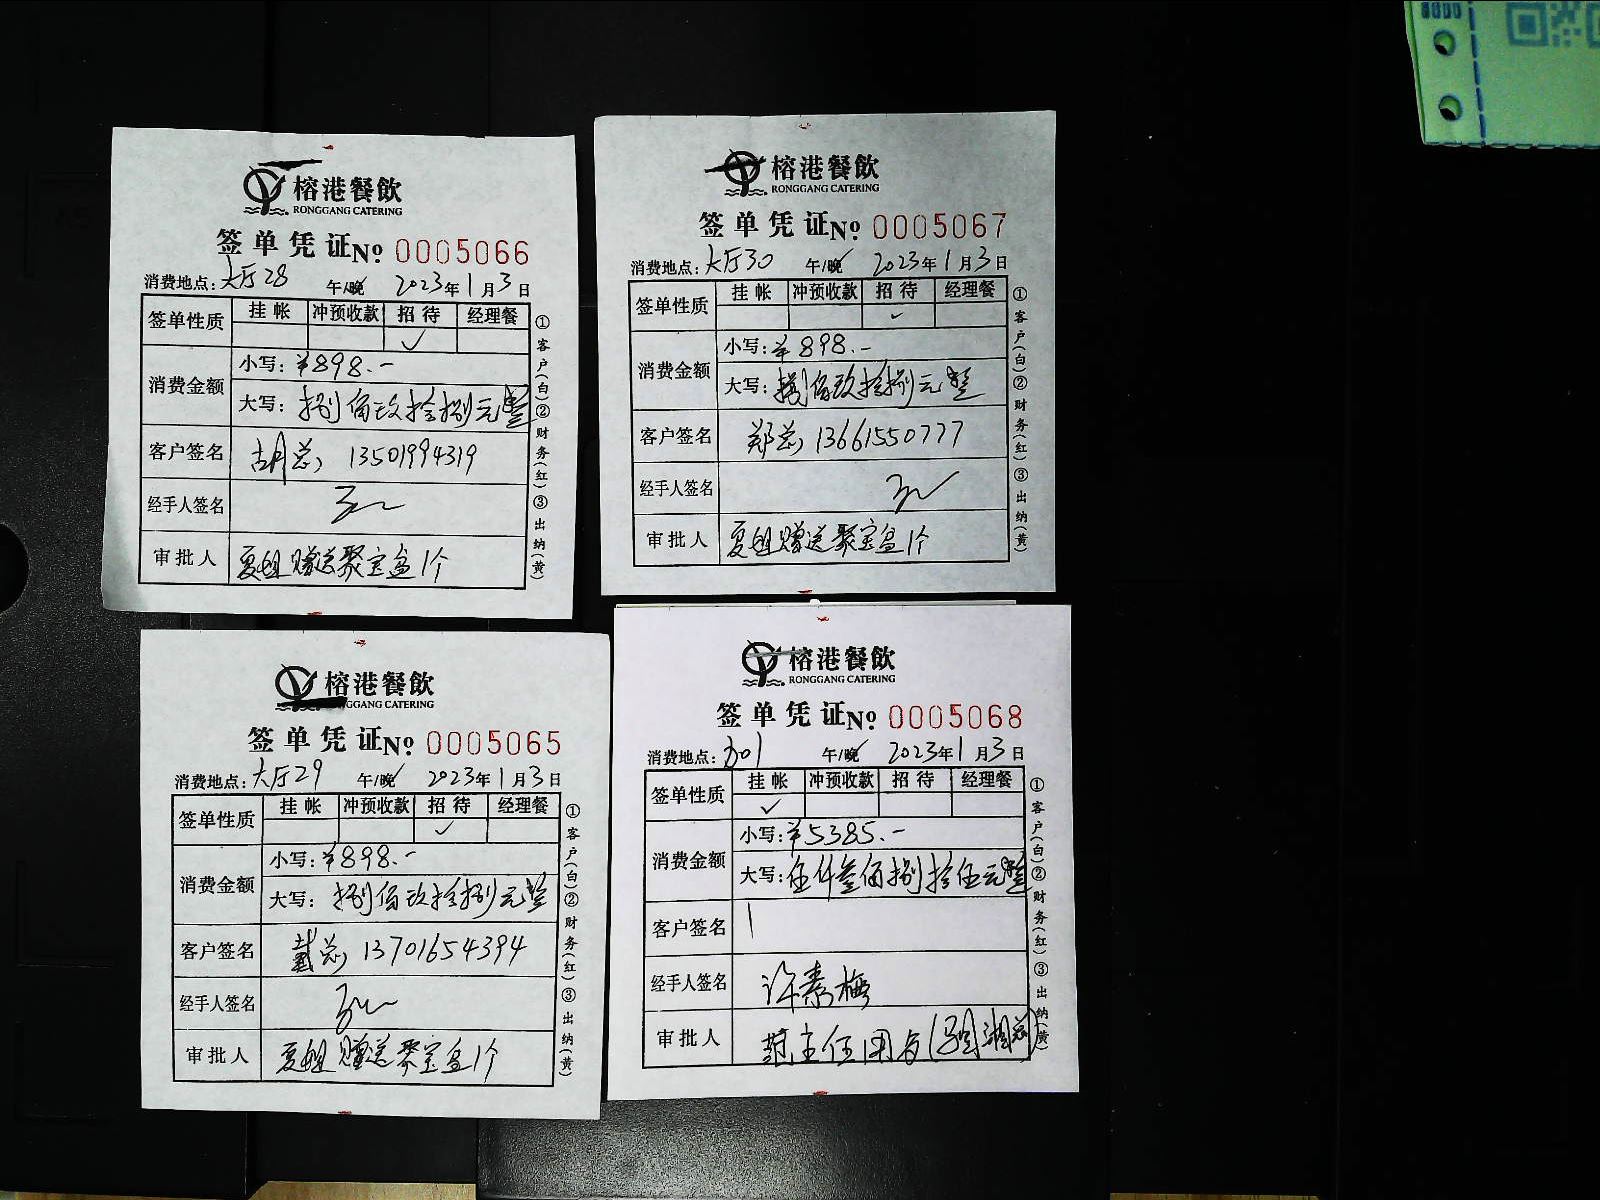 榕港餐飲
RONGGANG CATERING
签单凭证 No. 0005066
消费地点：大厅28 午/晚 2023年1月3日
签单性质 挂帐 冲预收款 招待 经理餐
✓
消费金额 小写：¥898.-
大写：捌佰玖拾捌元整
客户签名 胡总 13501994319
经手人签名
审批人 夏姐赠送聚宝盆1个
①客户(白)②财务(红)③出纳(黄)
榕港餐飲
RONGGANG CATERING
签单凭证 No. 0005067
消费地点：大厅30 午/晚 2023年1月3日
签单性质 挂帐 冲预收款 招待 经理餐
✓
消费金额 小写：¥898.-
大写：捌佰玖拾捌元整
客户签名 郑总 13661550777
经手人签名
审批人 夏姐赠送聚宝盆1个
①客户(白)②财务(红)③出纳(黄)
榕港餐飲
GGANG CATERING
签单凭证 No. 0005065
消费地点：大厅29 午/晚 2023年1月3日
签单性质 挂帐 冲预收款 招待 经理餐
✓
消费金额 小写：¥898.-
大写：捌佰玖拾捌元整
客户签名 戴总 13701654394
经手人签名
审批人 夏姐赠送聚宝盆1个
①客户(白)②财务(红)③出纳(黄)
榕港餐飲
RONGGANG CATERING
签单凭证 No. 0005068
消费地点：301 午/晚 2023年1月3日
签单性质 挂帐 冲预收款 招待 经理餐
✓
消费金额 小写：¥5385.-
大写：伍仟叁佰捌拾伍元整
客户签名
经手人签名 许素梅
审批人 主任朋友
①客户(白)②财务(红)③出纳(黄)